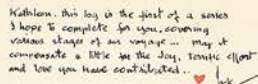 Kathleen. this log is the first of a series
I hope to complete for you, covering
various stages of our voyage... may it
compensate a little for the Joy, terrific effort
and love you have contributed..